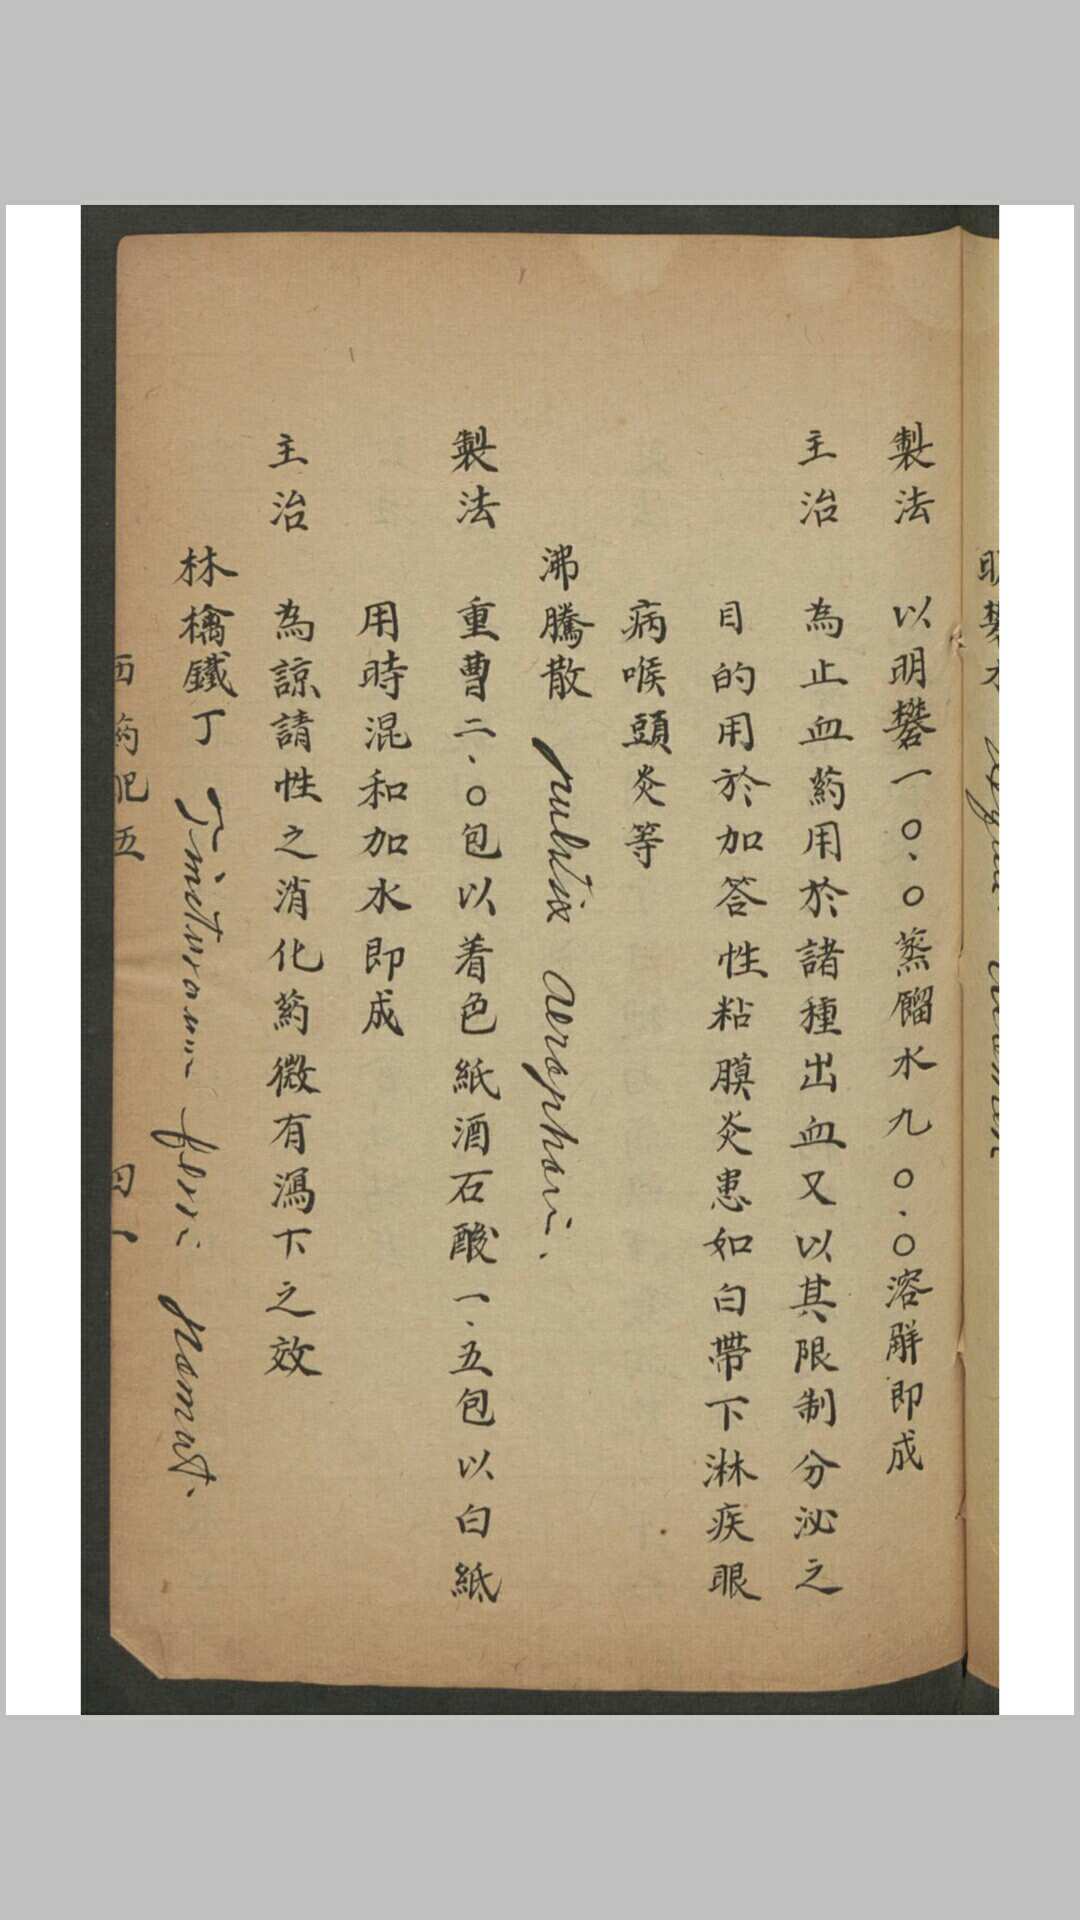 製法 以明礬一〇.〇蒸餾水九〇.〇溶解即成
主治 為止血葯用於諸種出血又以其限制分泌之
目的用於加答性粘膜炎患如白帶下淋疾眼
病喉頭炎等
沸騰散 pulvix aerophori.
製法 重曹二.〇包以着色紙酒石酸一.五包以白紙
用時混和加水即成
主治 為諒請性之消化葯微有瀉下之效
林檎鐵丁 ferri pomat.
五
四一